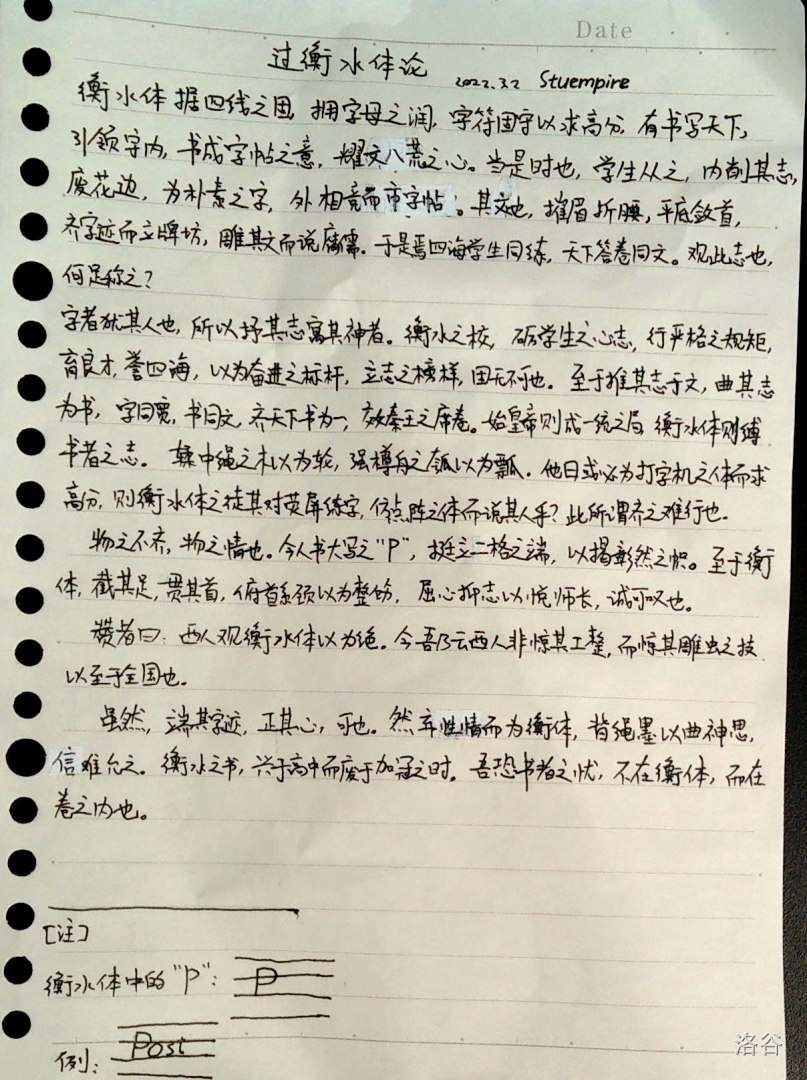 Date
过衡水体论 2022.3.2 Stuempire
衡水体据四线之固,拥字母之润,字符固守以求高分,有书写天下,
引领字内,书成字帖之意,耀文八荒之心。当是时也,学生从之,内削其志,
废花边,为朴素之字,外相竞而重字帖。其文也,摧眉折腰,平底敛首,
齐字迹而立牌坊,雕其文而说腐儒。于是焉四海学生同练,天下答卷同文。观此志也,
何足称之?
字者犹其人也,所以抒其志寓其神者。衡水之校,砺学生之心志,行严格之规矩,
育良才,誉四海,以为奋进之标杆,立志之榜样,固无不可也。至于推其志于文,曲其志
为书,字同宽,书同文,齐天下书为一,效秦王之席卷。始皇帝则成一统之局,衡水体则缚
书者之志。輮中绳之木以为轮,强樽舟之瓠以为瓢。他日或必为打字机之体而求
高分,则衡水体之徒其对荧屏练字,仿点阵之体而说其人乎?此所谓齐之难行也.
物之不齐,物之情也。今人书大写之"P",挺立二格之端,以揭彰然之帜。至于衡
体,截其足,贯其首,俯首系颈以为整饬,屈心抑志以悦师长,诚可叹也。
赞者曰:西人观衡水体以为绝。今吾乃云西人非惊其工整,而惊其雕虫之技
以至于全国也。
虽然,端其字迹,正其心,可也。然弃性情而为衡体,背绳墨以曲神思,
信难允之。衡水之书,兴于高中而废于加冠之时。吾恐书者之忧,不在衡体,而在
卷之内也。
[注]
衡水体中的"P": P
例: Post
洛谷